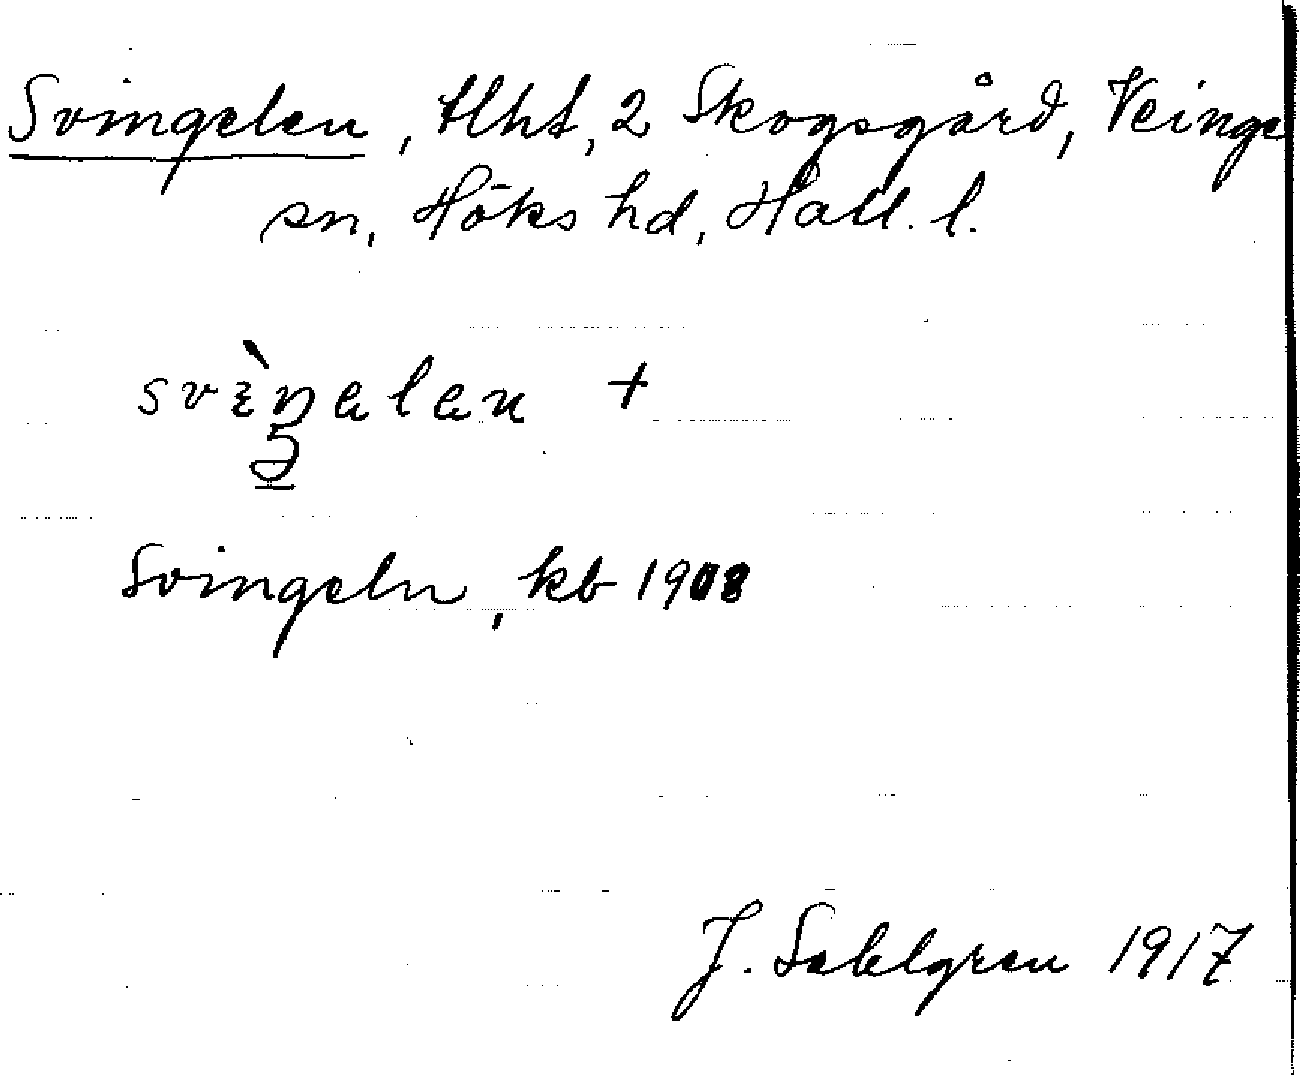 Svingelen, tlht, 2 Skogsgård, Veinge
sn, Höks hd, Hall. l.
svìŋelen +
Svingeln, kb 1908
J. Sahlgren 1917